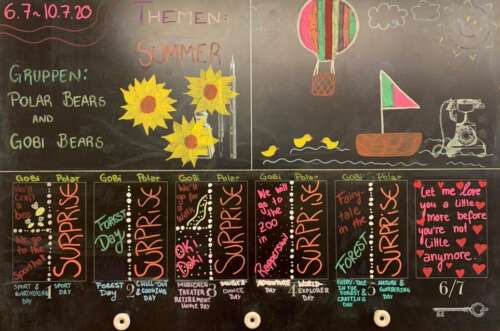 6.7~10.7.20
THEMEN:
SUMMER
GRUPPEN:
POLAR BEARS
AND
GOBI BEARS
GOBI POLAR
We'll craft
bees
We go to the
Sporthall
SURPRISE
1
SPORT &
GARDENING
DAY
SPORT
DAY
GOBI POLAR
FOREST
DAY
SURPRISE
2
FOREST
DAY
CHILL-OUT
& COOKING
DAY
GOBI POLAR
We'll go
for a
SURPRISE
3
MÄRCHEN
THEATER
RETIREMENT
HOME DAY
DANCE
DAY
GOBI POLAR
We will go
to the
ZOO
in
Rapperswil
SURPRISE
4
ADVENTURE
DAY
WORLD-
EXPLORER
DAY
GOBI POLAR
Fairy-
tale in
the
FOREST
SURPRISE
5
FAIRY-TALE IN
THE FOREST &
CRAFTING
DAY
NATURE &
GARDENING
DAY
Let me love
you a little
more before
you're not
little
anymore.
6/7